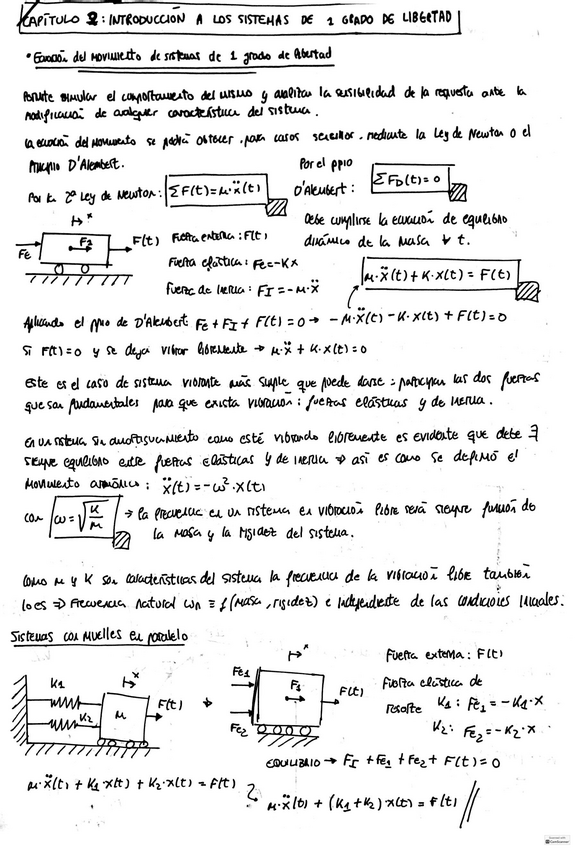 CAPÍTULO 2: INTRODUCCIÓN A LOS SISTEMAS DE 1 GRADO DE LIBERTAD
• Ecuación del movimiento de sistemas de 1 grado de libertad
Permite simular el comportamiento del mismo y analizar la sensibilidad de la respuesta ante la
modificación de cualquier característica del sistema.
La ecuación del movimiento se podrá obtener, para casos sencillos, mediante la Ley de Newton o el
Principio D'Alembert.
Por la 2ª Ley de Newton: ΣF(t)=M·ẍ(t)
Por el ppio
D'Alembert: ΣF_D(t)=0
x
Fe F_I F(t)
Fuerza externa: F(t)
Fuerza elástica: Fe=-Kx
Fuerza de inercia: F_I=-M·ẍ
Debe cumplirse la ecuación de equilibrio
dinámico de la masa ∀ t.
M·ẍ(t)+K·x(t)=F(t)
Aplicando el ppio de D'Alembert Fe+F_I+F(t)=0 → -M·ẍ(t)-K·x(t)+F(t)=0
Si F(t)=0 y se deja vibrar libremente → M·ẍ+K·x(t)=0
Este es el caso de sistema vibrante más simple que puede darse: participan las dos fuerzas
que son fundamentales para que exista vibración: fuerzas elásticas y de inercia.
En un sistema sin amortiguamiento como esté vibrando libremente es evidente que debe ∃
siempre equilibrio entre fuerzas elásticas y de inercia ⇒ así es como se definió el
Movimiento armónico: ẍ(t)=-ω²·x(t)
con ω=√(K/M) → la frecuencia en un sistema en vibración libre será siempre función de
la masa y la rigidez del sistema.
Como M y K son características del sistema la frecuencia de la vibración libre también
lo es ⇒ Frecuencia natural ωn ≡ f(masa, rigidez) e independiente de las condiciones iniciales.
Sistemas con muelles en paralelo
x
K1 K2 M F(t)
x
Fe1 Fe2 F_I F(t)
Fuerza externa: F(t)
Fuerza elástica de
resorte K1: Fe1=-K1·x
K2: Fe2=-K2·x
EQUILIBRIO → F_I+Fe1+Fe2+F(t)=0
M·ẍ(t)+K1·x(t)+K2·x(t)=F(t)
M·ẍ(t)+(K1+K2)·x(t)=F(t)
CamScanner